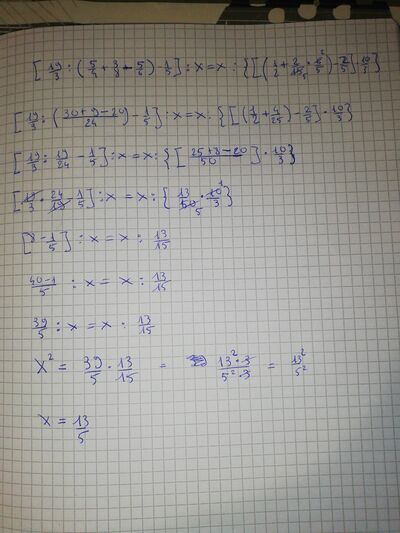 [19/3 : (5/4 + 3/8 - 5/6) - 1/5] : x = x : {[(1/2 + 2/15 · 6/5) - 2/5] · 10/3}
[19/3 : (30+9-20/24) - 1/5] : x = x : {[(1/2 + 4/25) - 2/5] · 10/3}
[19/3 : 19/24 - 1/5] : x = x : {[25+8-20/50] · 10/3}
[19/3 · 24/19 - 1/5] : x = x : {13/50 · 10/3}
[8 - 1/5] : x = x : 13/15
40-1/5 : x = x : 13/15
39/5 : x = x : 13/15
x² = 39/5 · 13/15 = 13²·3/5²·3 = 13²/5²
x = 13/5